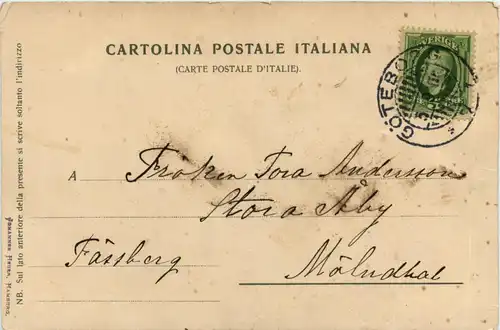 CARTOLINA POSTALE ITALIANA
(CARTE POSTALE D'ITALIE).
SVERIGE
GÖTEBO
A Fröken Tora Andersson
Stora Åby
Fässberg
Mölndhal
NB. Sul lato anteriore della presente si scrive soltanto l'indirizzo
JOHANNES MEYER, HAMBURG.